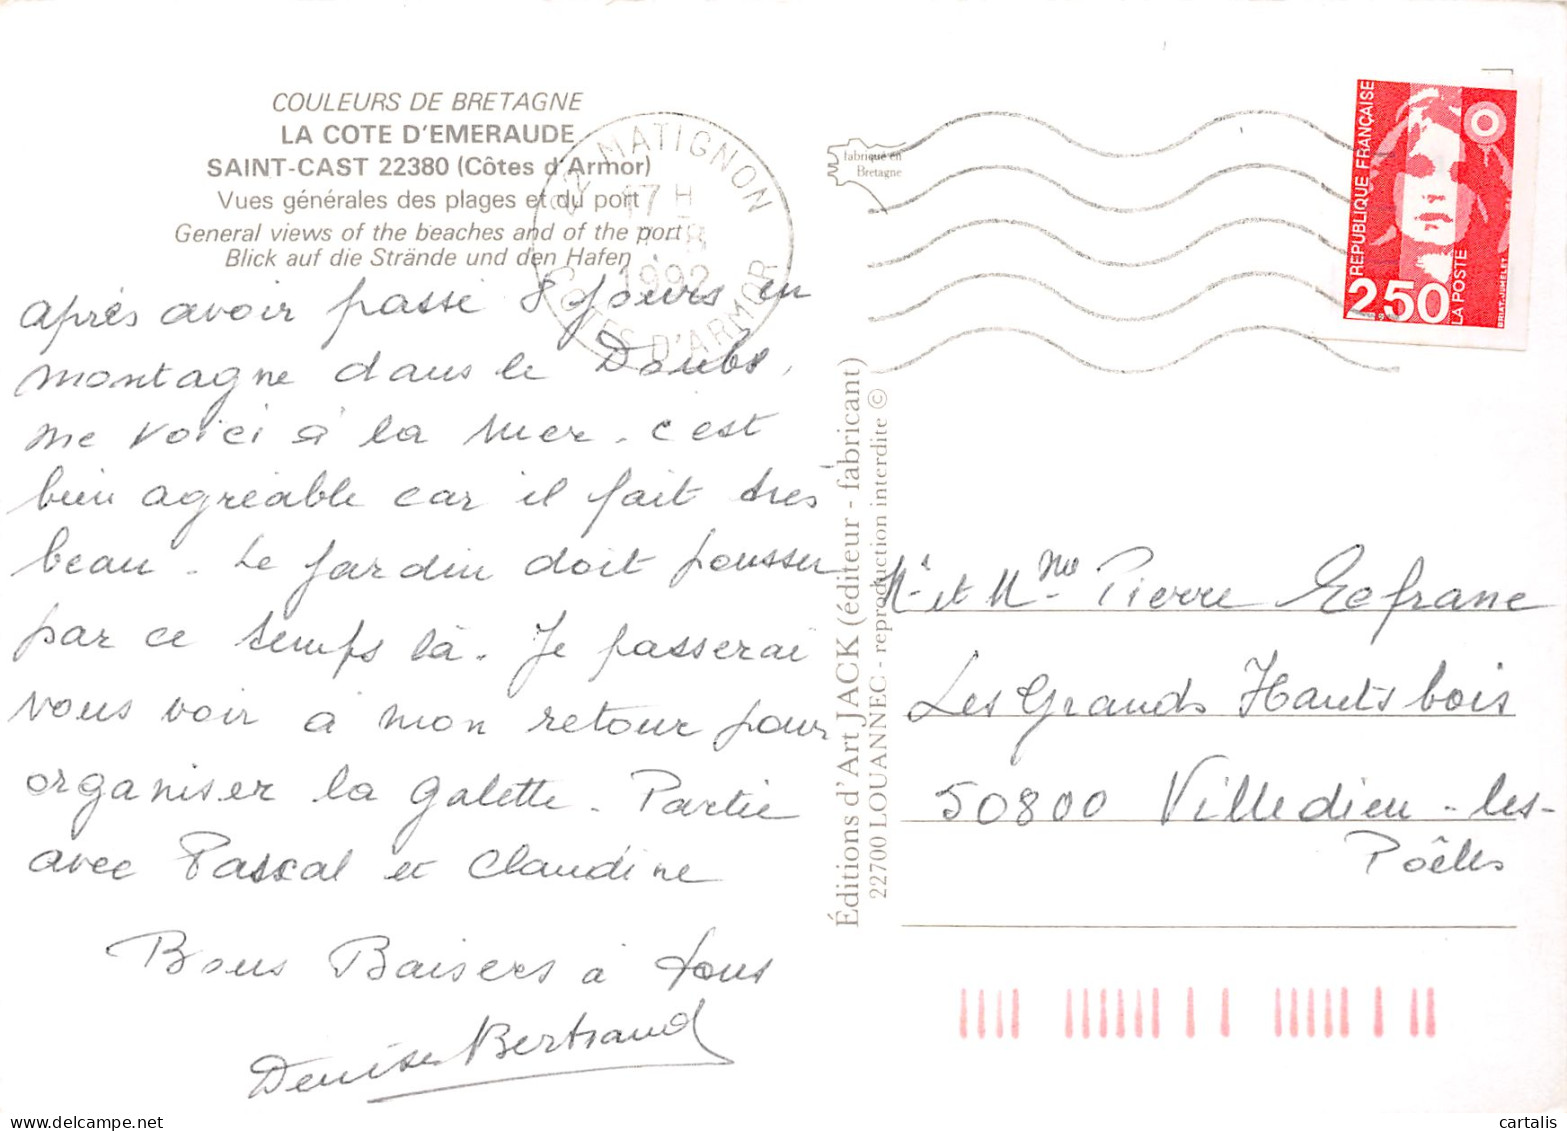 COULEURS DE BRETAGNE
LA COTE D'EMERAUDE
SAINT-CAST 22380 (Côtes d'Armor)
Vues générales des plages et du port
General views of the beaches and of the port
Blick auf die Strände und den Hafen
après avoir passé 8 jours en
montagne dans le Doubs,
me voici à la mer. c'est
bien agréable car il fait très
beau. Le jardin doit pousser
par ce temps là. Je passerai
vous voir à mon retour pour
organiser la galette. Partie
avec Pascal et Claudine
Bons Baisers à tous
Denise Bertrand
22 MATIGNON
17 H
1992
COTES D'ARMOR
fabriqué en
Bretagne
Éditions d'Art JACK (éditeur - fabricant)
22700 LOUANNEC - reproduction interdite ©
REPUBLIQUE FRANÇAISE
2,50
LA POSTE
BRIAT-JUMELET
Mr et Mme Pierre
Les Grands Hauts bois
50800 Villedieu-les-
Poêles
cartalis